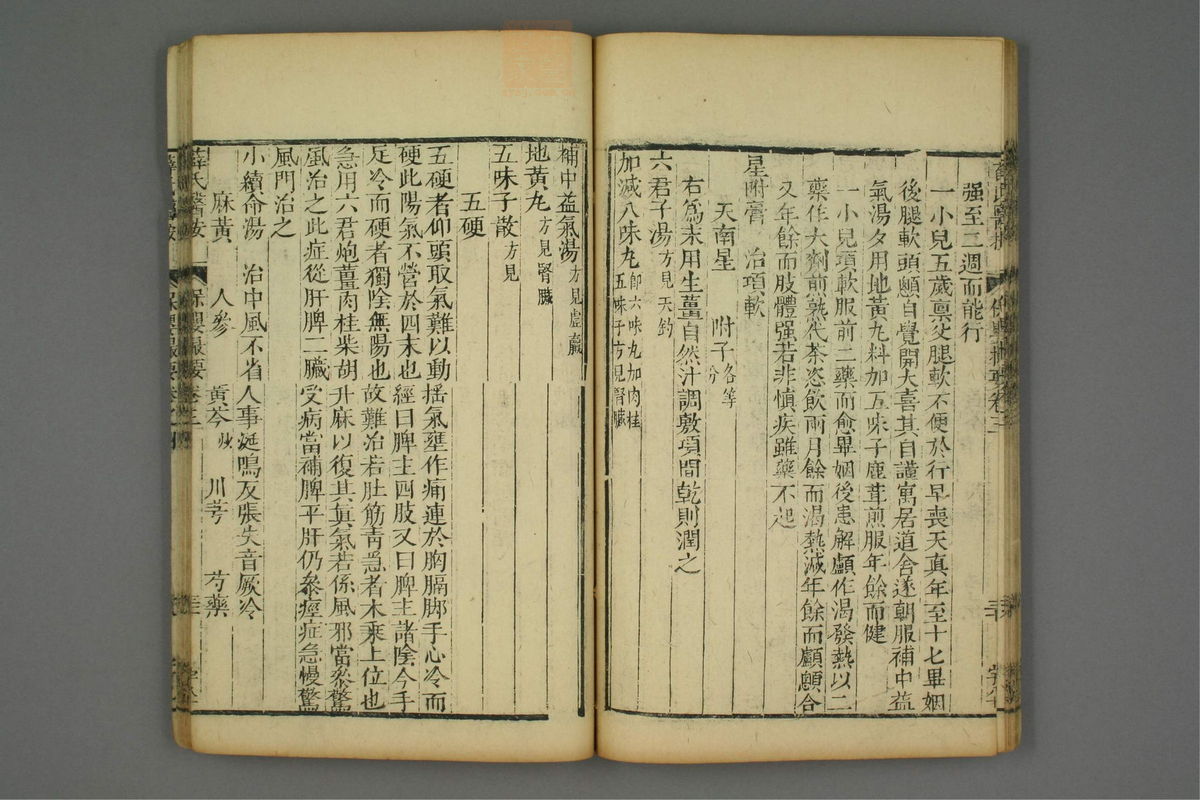 强至二週而能行
一小兒五歲禀父腿軟不便於行早喪天真年至十七畢姻
後腿軟頭顱自覺開大喜其自謹寓居道舍遂朝服補中益
氣湯夕用地黃丸料加五味子鹿茸煎服年餘而健
一小兒項軟服前二藥而愈畢姻後患解顱作渴發熱以二
藥作大劑煎熟代茶恣飲兩月餘而渴熱減年餘而顱顖合
又年餘而肢體强若非慎疾雖藥不起
星附膏　治項軟
天南星　附子各等分
右爲末用生薑自然汁調敷項間乾則潤之
六君子湯方見天釣
加減八味丸即六味丸加肉桂五味子方見腎臟
補中益氣湯方見虛羸
地黃丸方見腎臟
五味子散方見
五硬
五硬者仰頭取氣難以動搖氣壅作痛連於胸膈脚手心冷而
硬此陽氣不營於四末也經曰脾主四肢又曰脾主諸陰今手
足冷而硬者獨陰無陽也故難治若肚筋青急者木乘土位也
急用六君炮薑肉桂柴胡升麻以復其真氣若係風邪當參驚
風治之此症從肝脾二臟受病當補脾平肝仍參痙症急慢驚
風門治之
小續命湯　治中風不省人事涎鳴反張失音厥冷
麻黃　人參　黃芩炒　川芎　芍藥
薛氏醫按　保嬰撮要卷三